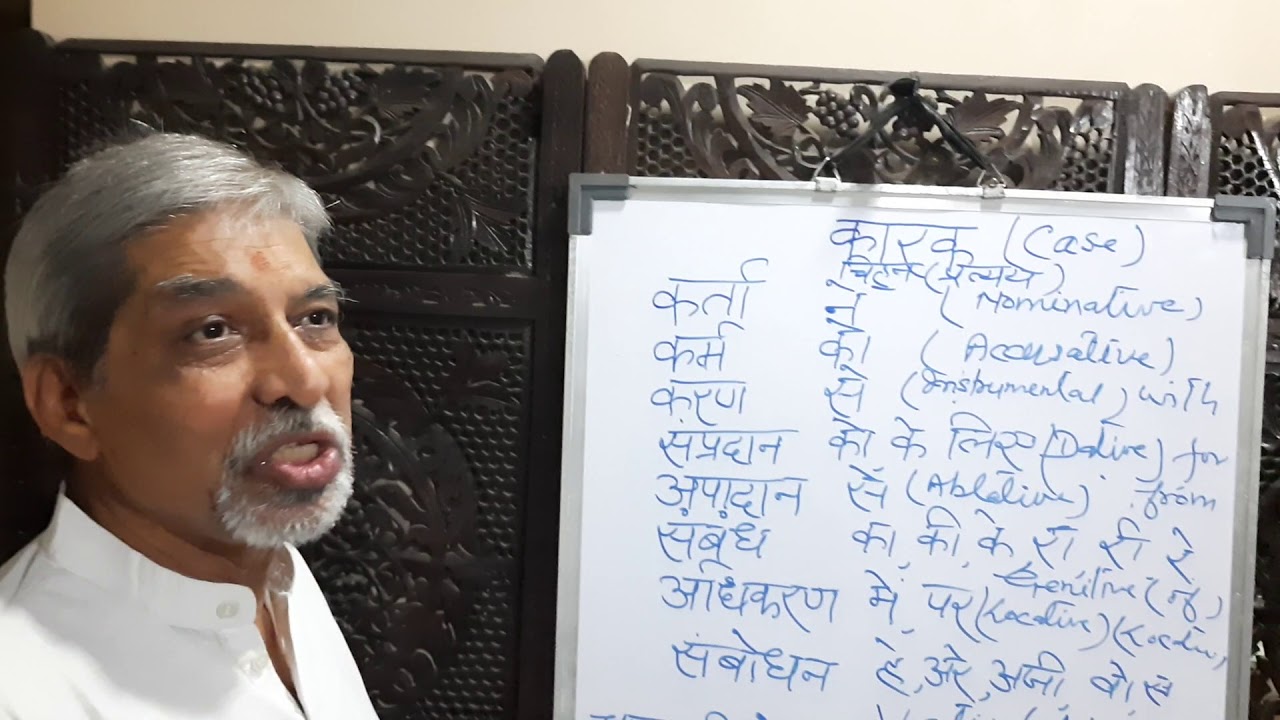 कारक (Case)
चिह्न (प्रत्यय)
कर्ता ने (Nominative)
कर्म को (Accusative)
करण से (Instrumental) with
संप्रदान को के लिए (Dative) for
अपादान से (Ablative) from
संबंध का, की, के, रा, री, रे
Genitive
अधिकरण में, पर (Locative)
संबोधन हे, अरे, अजी,